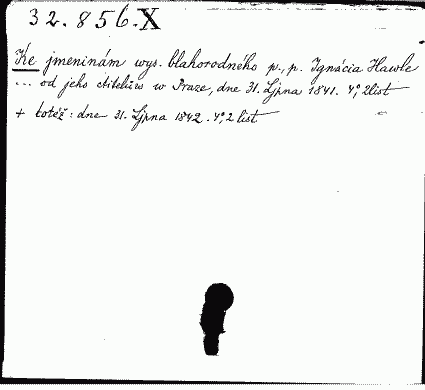 32.856.X
Ke jmeninám wys. blahorodného p., p. Ignácia Hawle
... od jeho ctitelůw w Praze, dne 31. Ljpna 1841. 4°, 2 list
+ totéž: dne 31. Ljpna 1842. 4°, 2 list